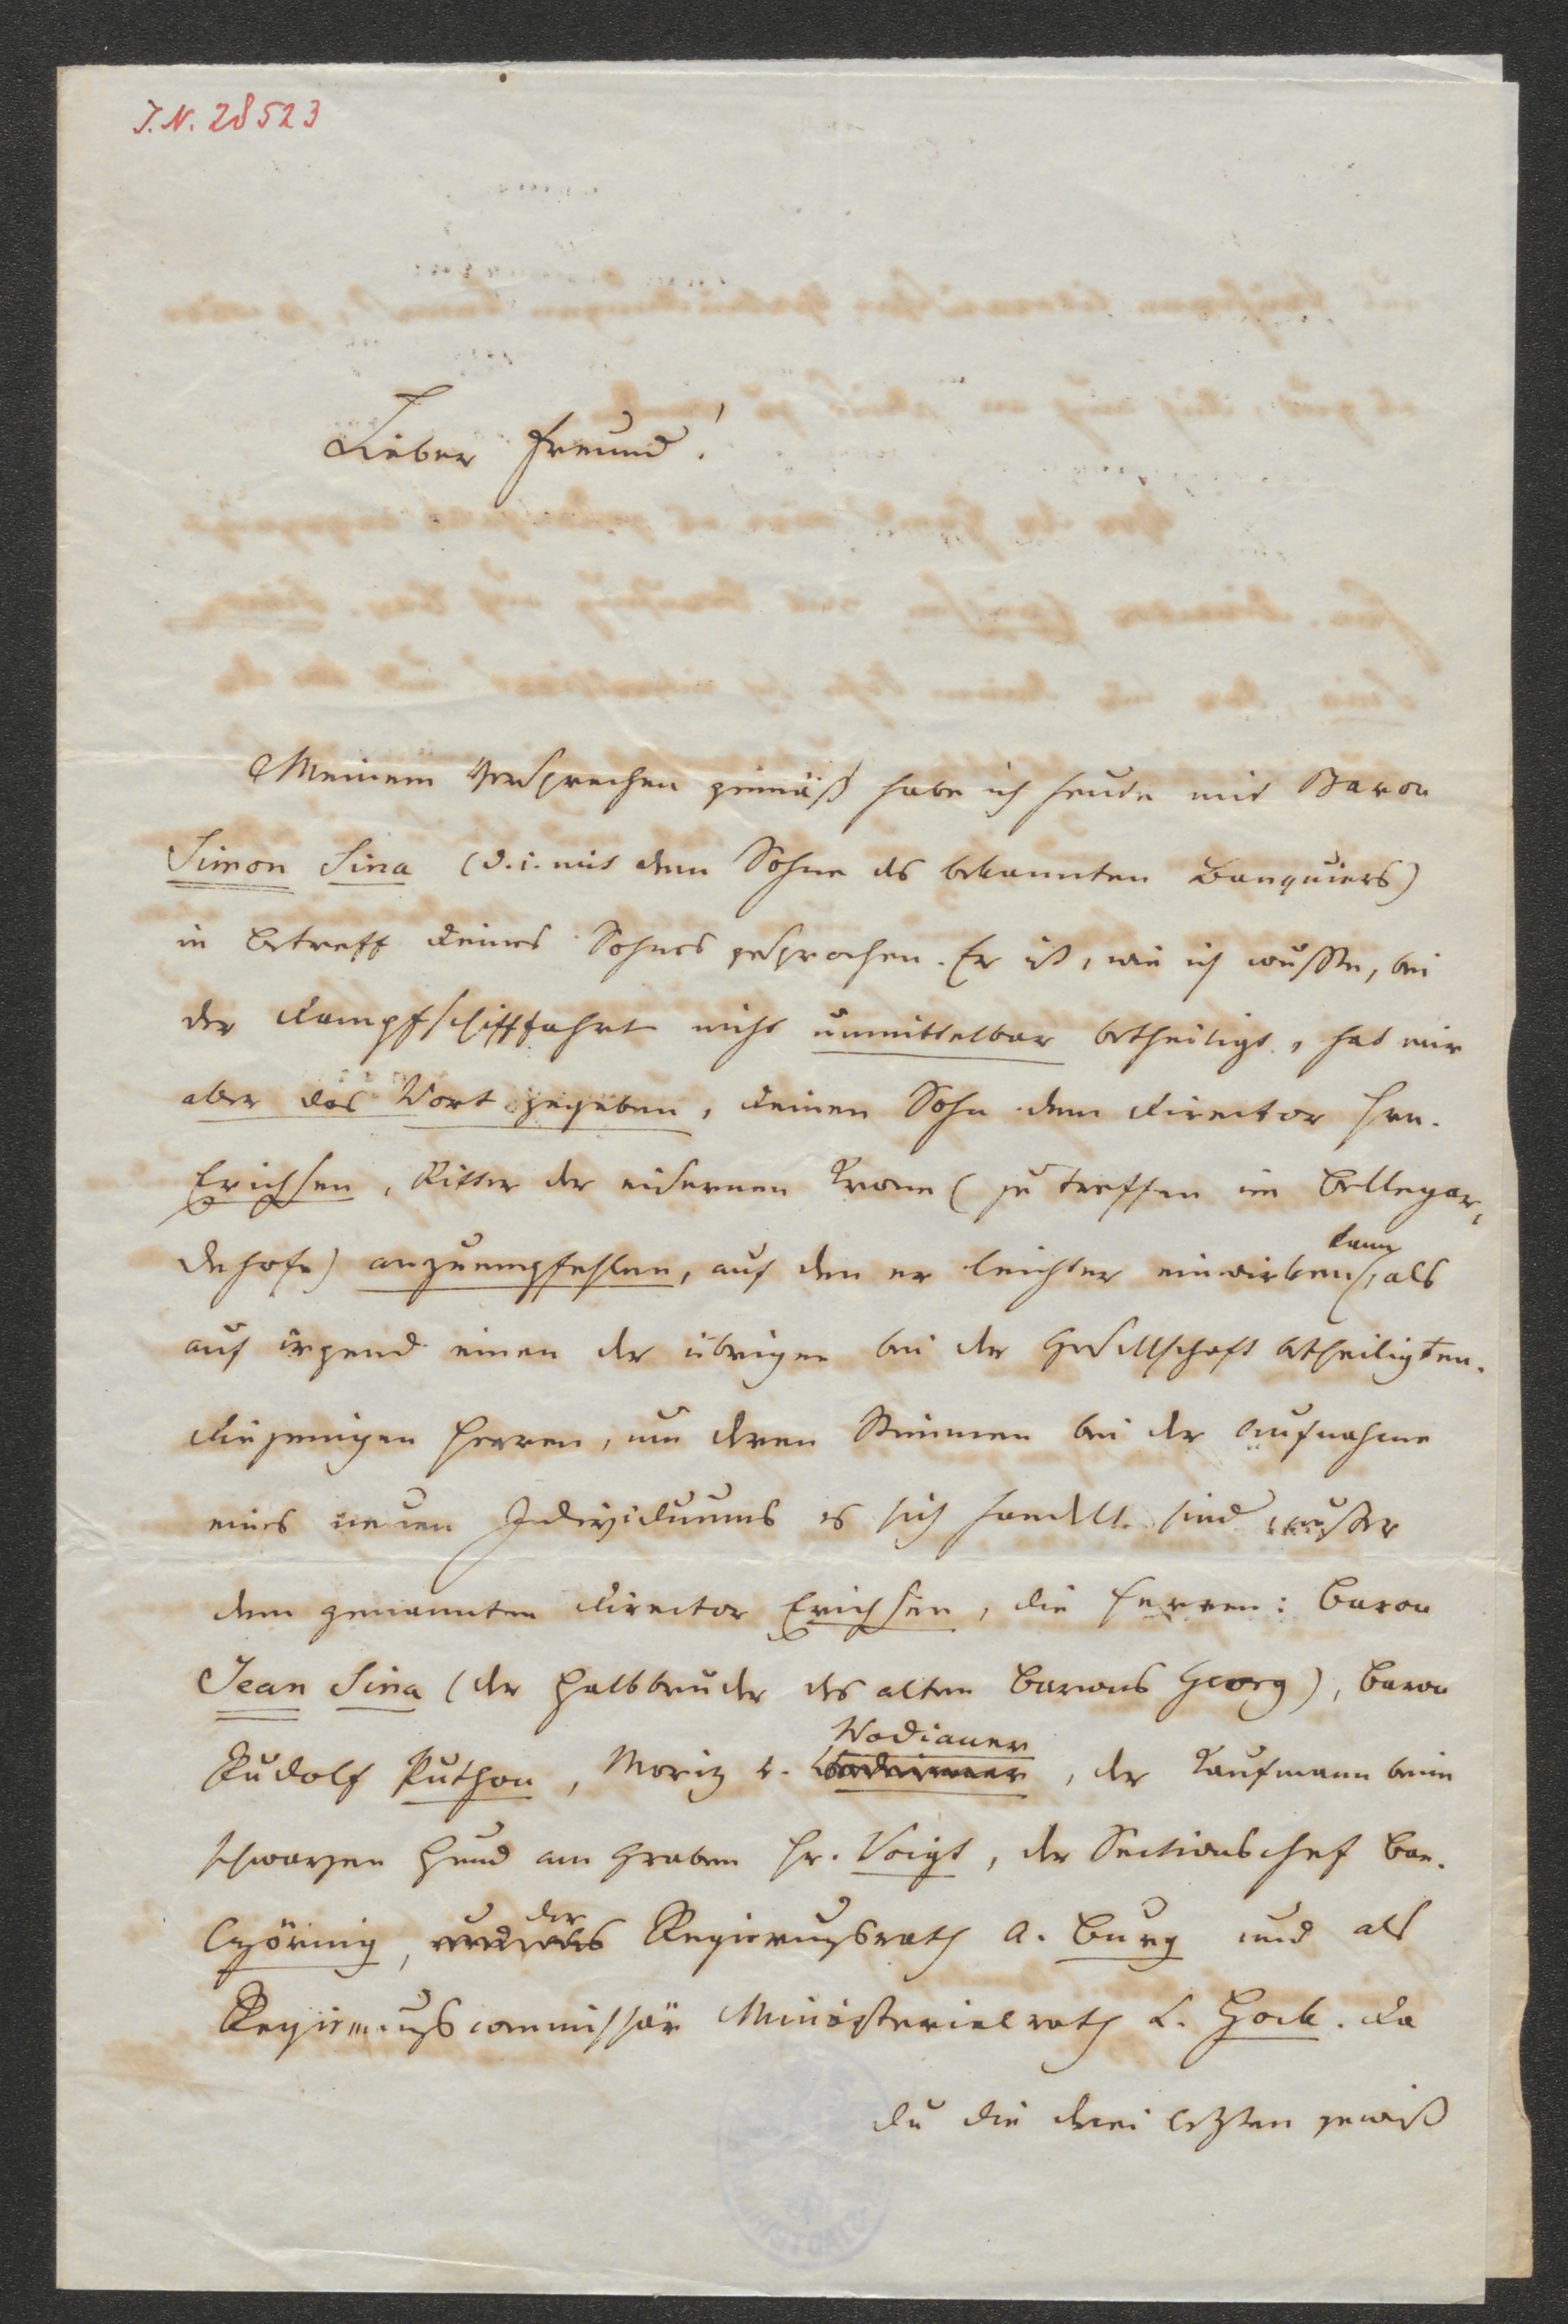 J.N. 28523
Lieber Freund!
Meinem Versprechen gemäß habe ich heute mit Baron
Simon Sina (d.i. mit dem Sohne des bekannten Banquiers)
in Betreff Deines Sohnes gesprochen. Er ist, wie ich wußte, bei
der Dampfschifffahrt nicht unmittelbar betheiligt, hat mir
aber das Wort gegeben, Deinen Sohn dem Director Hrn.
Erichsen, Ritter der eisernen Krone (zu treffen im Bellegar-
dehofe) anzuempfehlen, auf den er leichter einwirken kann, als
auf irgend einen der übrigen bei der Gesellschaft Betheiligten.
Diejenigen Herren, um deren Stimmen bei der Aufnahme
eines neuen Individuums es sich handelt sind, außer
dem genannten Director Erichsen, die Herren: Baron
Jean Sina (der Halbbruder des alten Barons Georg), Baron
Rudolf Puthon, Moriz v. Wodianer, der Kaufmann beim
schwarzen Hund am Graben Hr. Voigt, der Sectionschef Bar.
Czörnig, der Regierungsrath A. Burg und als
Regierungscommissär Ministerialrath v. Hock. Da
Du die drei letzten gewiß